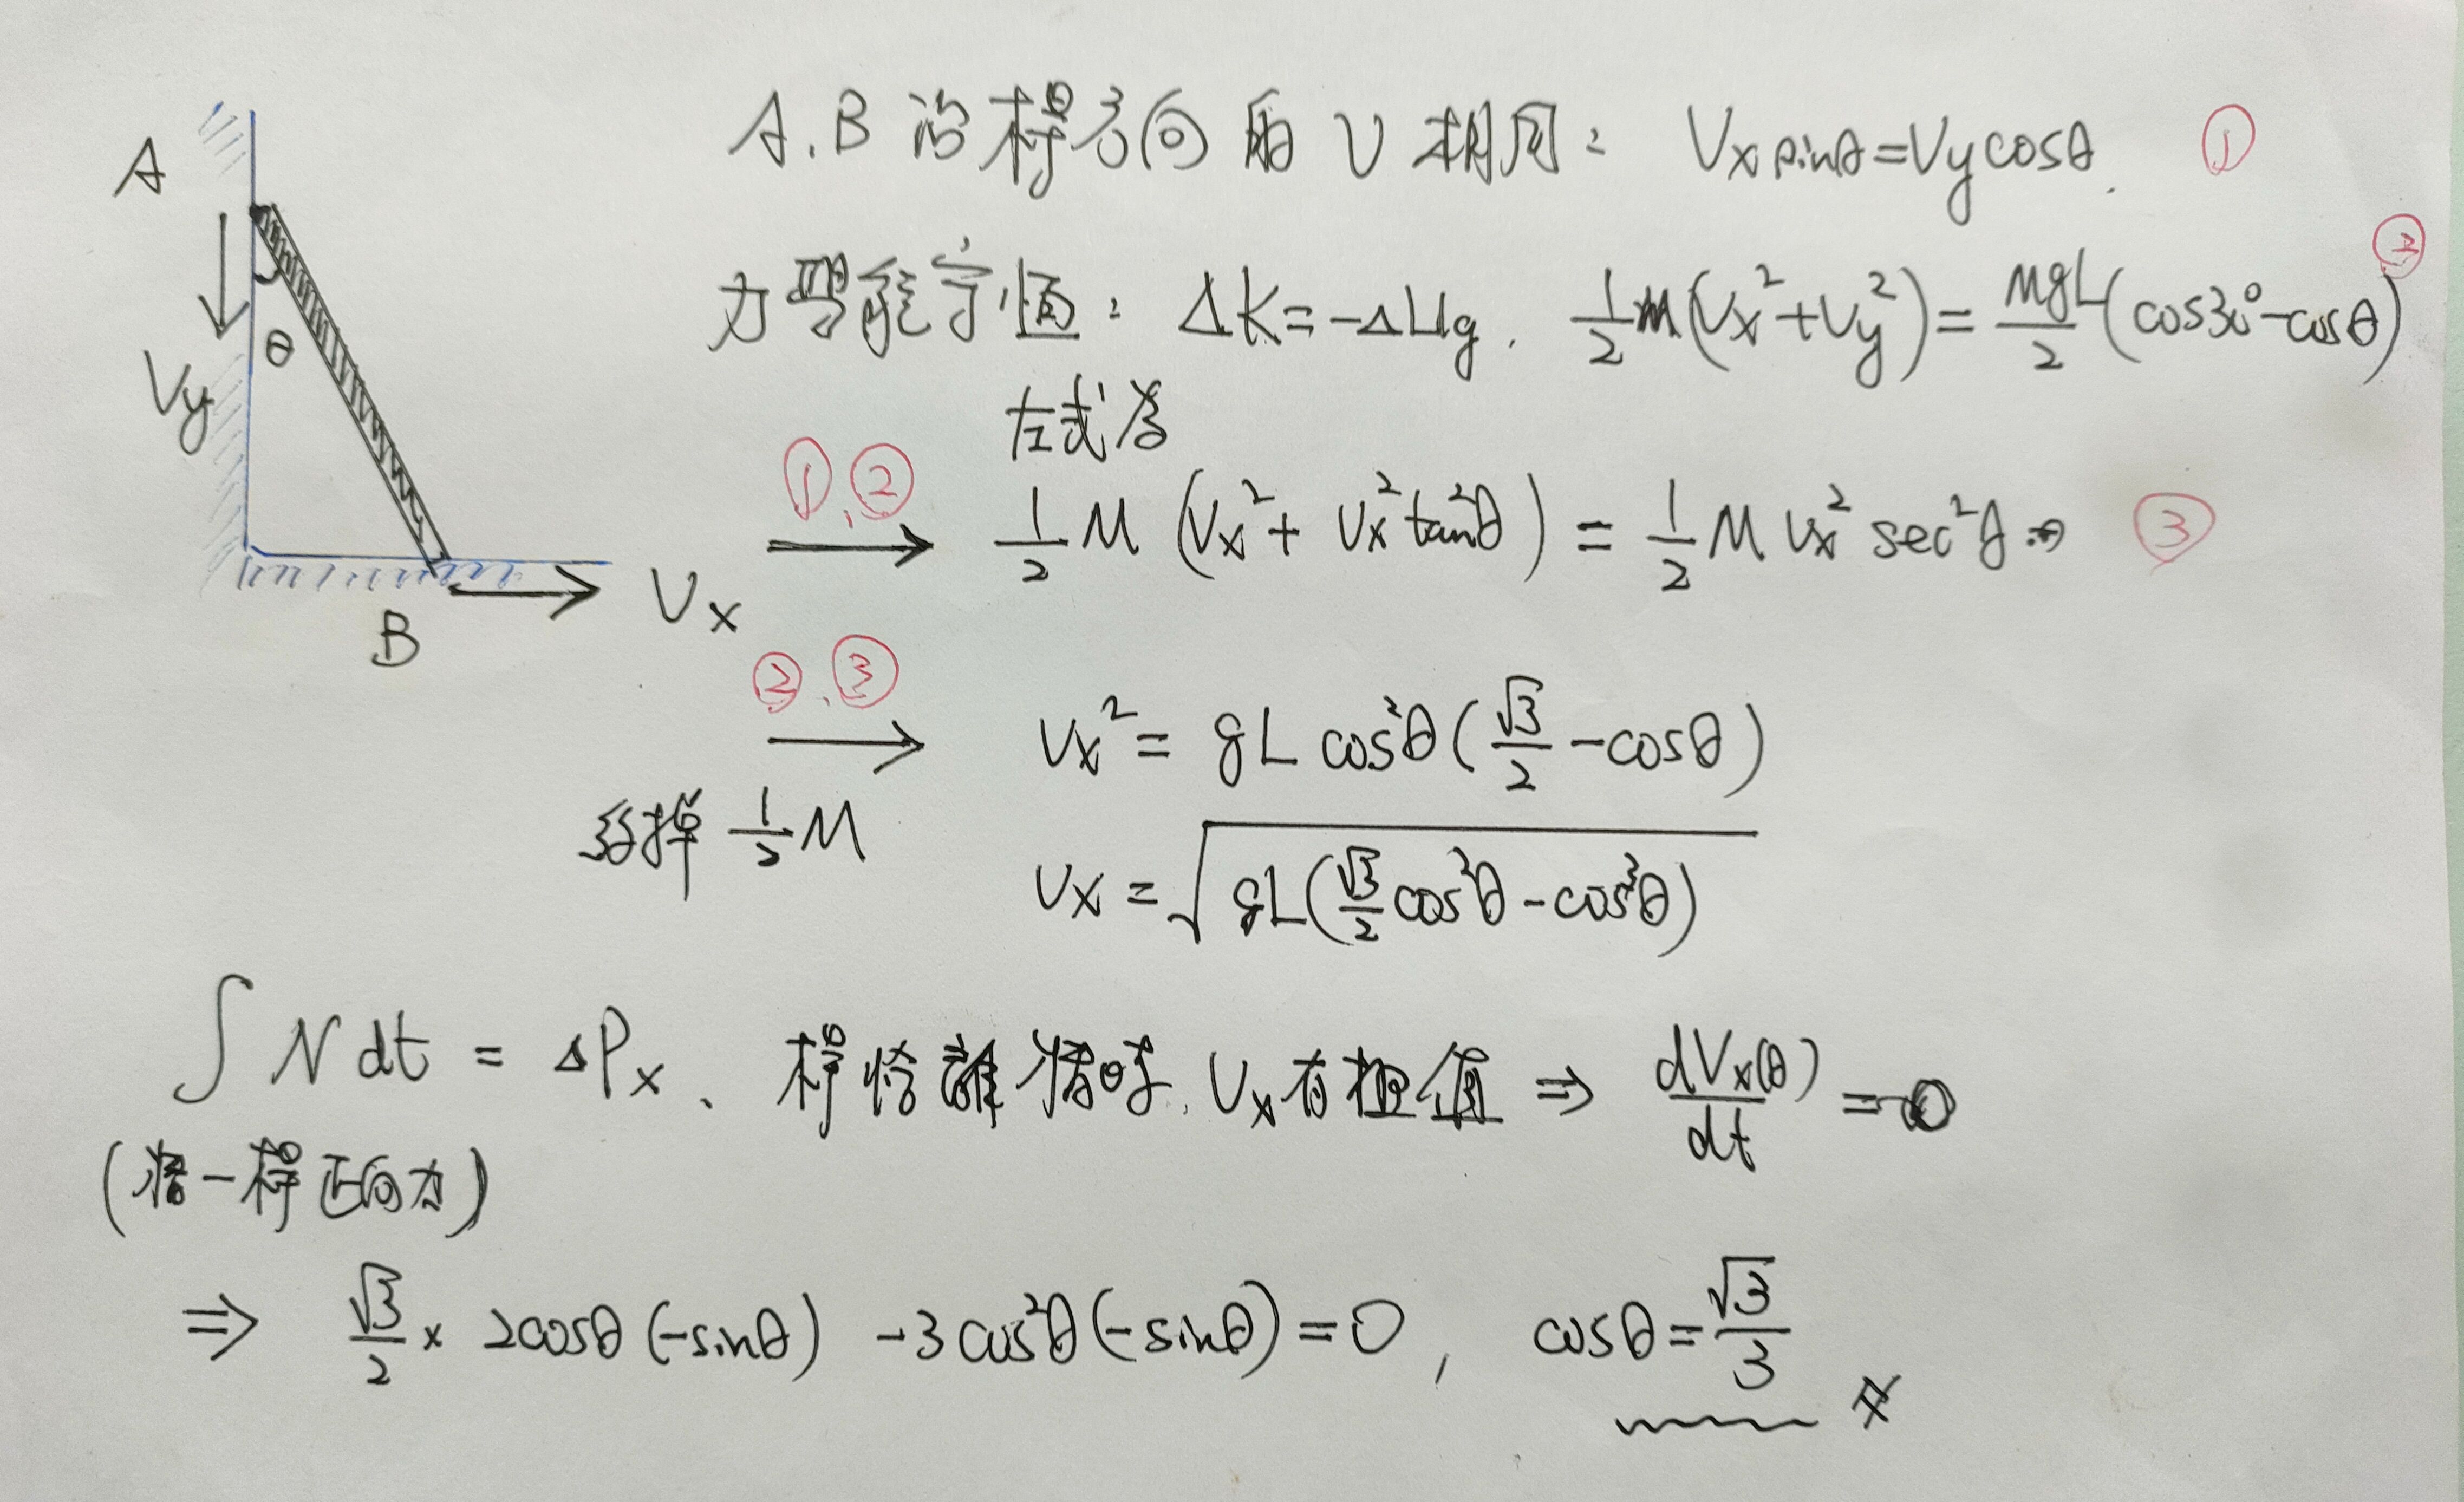 A
θ
Vy
B
Vx
A.B 沿桿方向的 V 相同: Vx sinθ=Vy cosθ. ①
力學能守恆: ΔK=-ΔUg. 1/2 M(Vx²+Vy²)= MgL/2 (cos30°-cosθ) ②
左式為
①.② → 1/2 M (Vx²+ Vx²tan²θ) = 1/2 M Vx² sec²θ ③
②.③ → Vx²= gL cos²θ(√3/2 -cosθ)
約掉 1/2 M
Vx = √(gL(√3/2 cos²θ-cos³θ))
∫N dt = ΔPx、桿恰離牆時. Vx有極值 ⇒ dVx(θ)/dt =0
(牆-桿正向力)
⇒ √3/2 × 2cosθ(-sinθ) -3cos²θ(-sinθ)=0, cosθ=√3/3